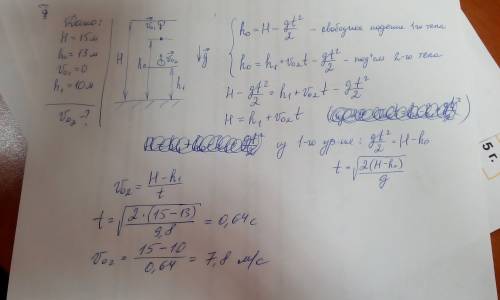 Дано:
H = 15м
h₀ = 13м
v₀₁ = 0
h₁ = 10м
v₀₂ - ?
H
h₀
h₁
v⃗₀₂
g⃗
{ h₀ = H - gt²/2 - свободное падение 1-го тела
h₀ = h₁ + v₀₂t - gt²/2 - подъём 2-го тела
H - gt²/2 = h₁ + v₀₂t - gt²/2
H = h₁ + v₀₂t
из 1-го ур-ия: gt²/2 = H - h₀
t = √(2(H-h₀)/g)
v₀₂ = (H - h₁)/t
t = √(2·(15-13)/9,8) = 0,64 с
v₀₂ = (15 - 10)/0,64 = 7,8 м/с
5 г.